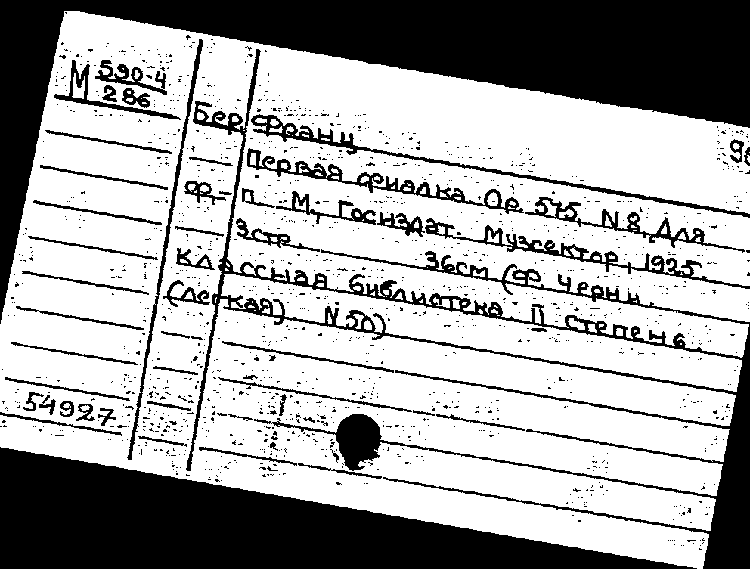 М 590-4
286
Бер, Франц
Первая фиалка. Ор. 575, N 8. Для
ф.-п. М., Госиздат. Музсектор, 1925.
3стр. 36см (Ф. Черни.
Классная библиотека. II степень.
(легкая). N 50)
54927